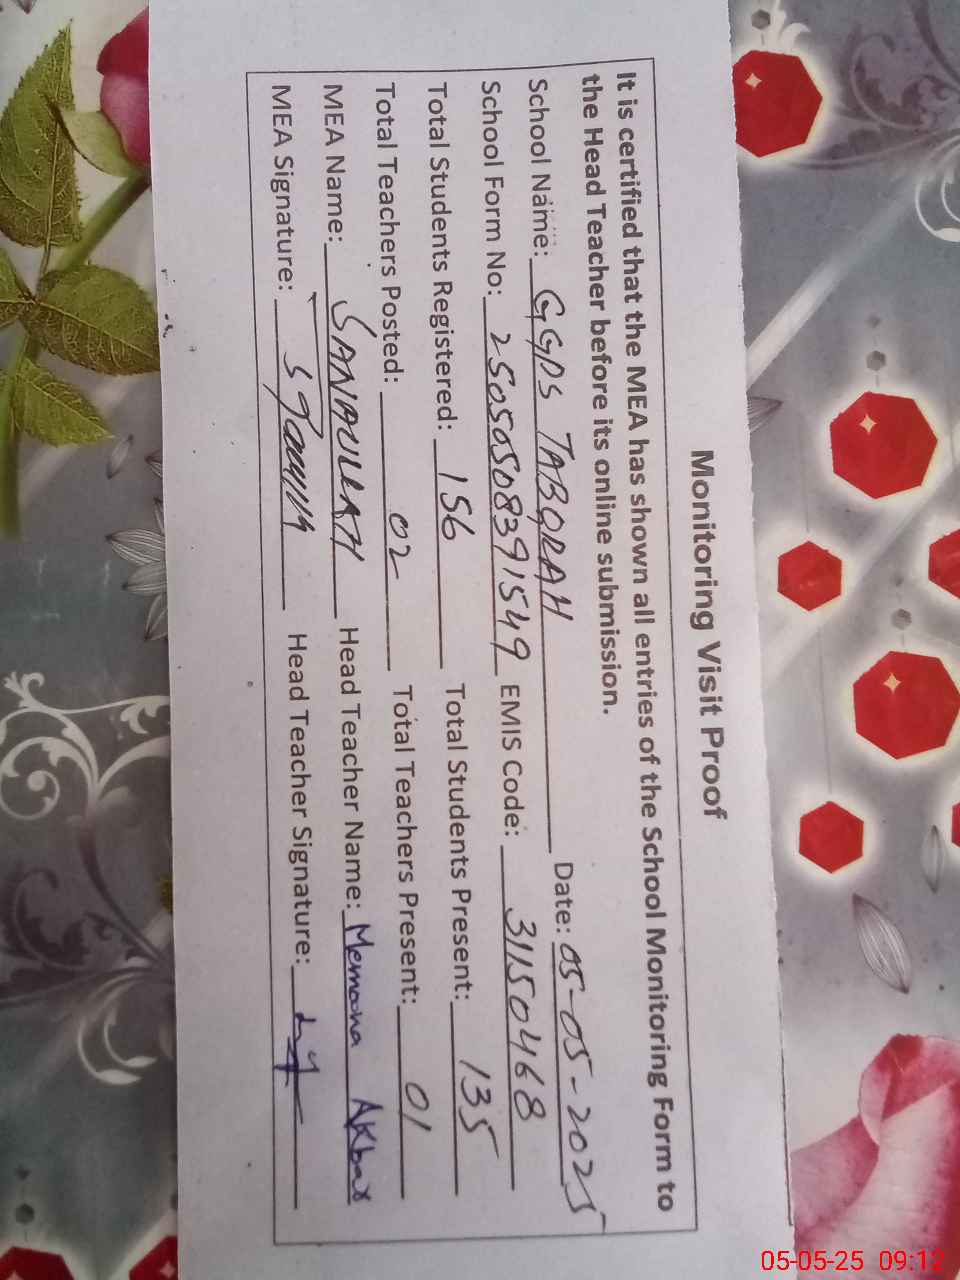 Monitoring Visit Proof
It is certified that the MEA has shown all entries of the School Monitoring Form to
the Head Teacher before its online submission.
School Name: GGPS TABORAH Date: 05-05-2025
School Form No: 25050508391549 EMIS Code: 31150468
Total Students Registered: 156 Total Students Present: 135
Total Teachers Posted: 02 Total Teachers Present: 01
MEA Name: SANAULLAH Head Teacher Name: Memoona Akbar
MEA Signature: Head Teacher Signature:
05-05-25 09:12